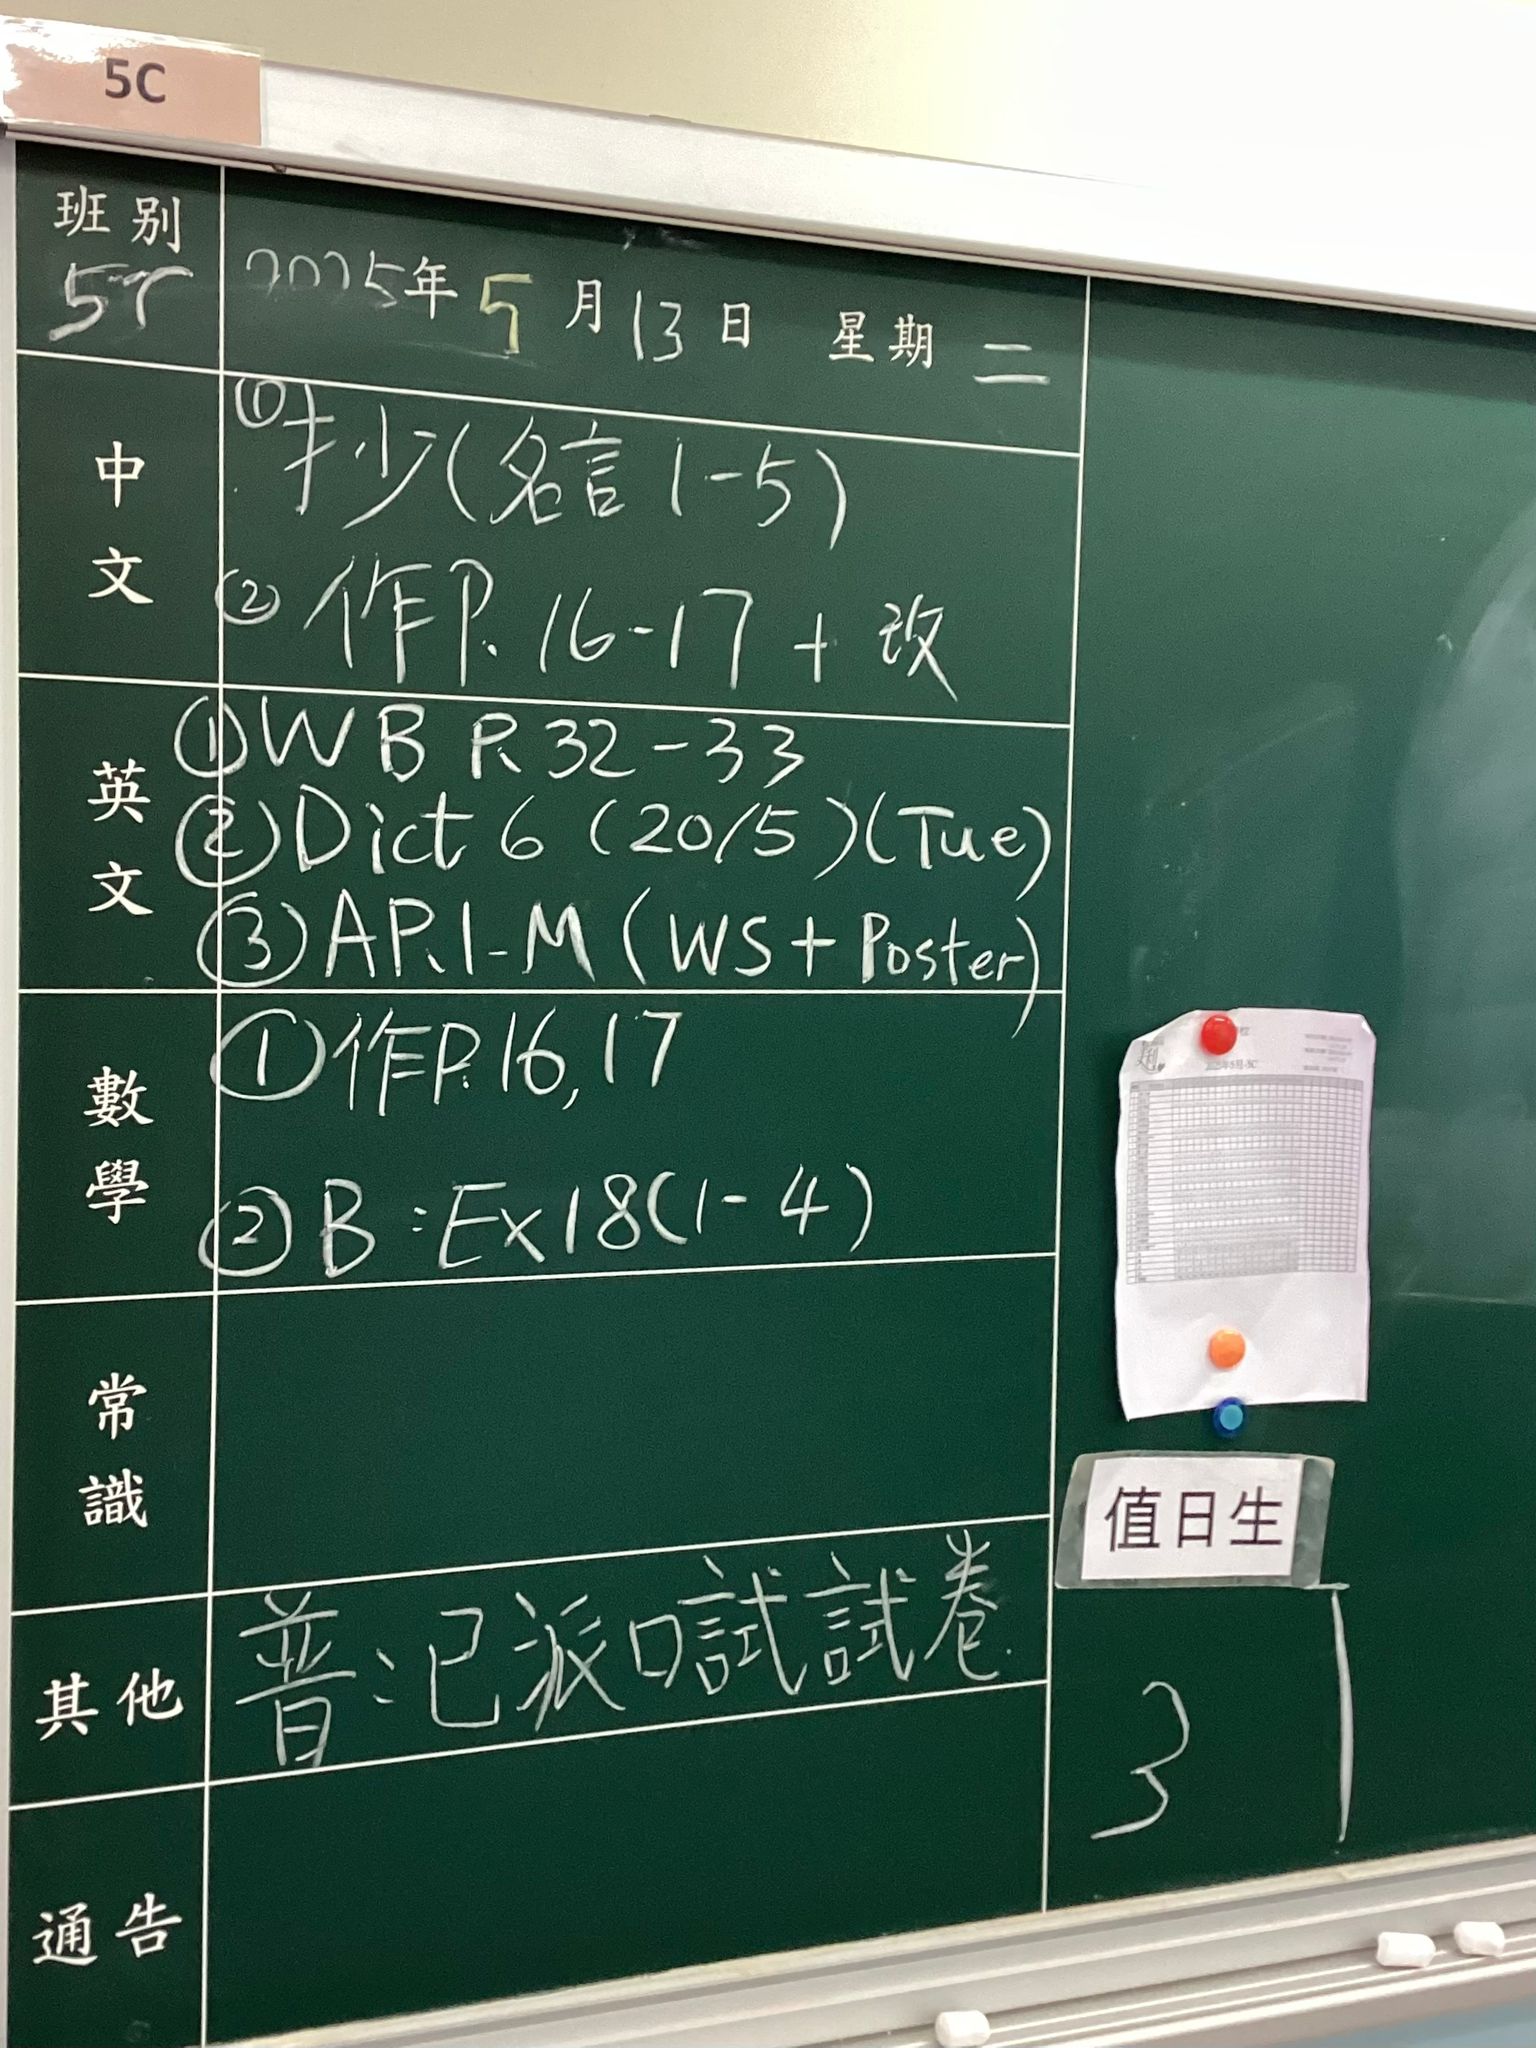 5C
班別
5C
2025年5月13日 星期二
中文
① 抄(名言1-5)
② 作P.16-17 + 改
英文
① WB P.32-33
② Dict 6 (20/5)(Tue)
③ AP.1-M (WS + Poster)
數學
① 作P.16,17
② B:Ex18(1-4)
常識
其他
普:已派口試試卷
通告
值日生
3 1